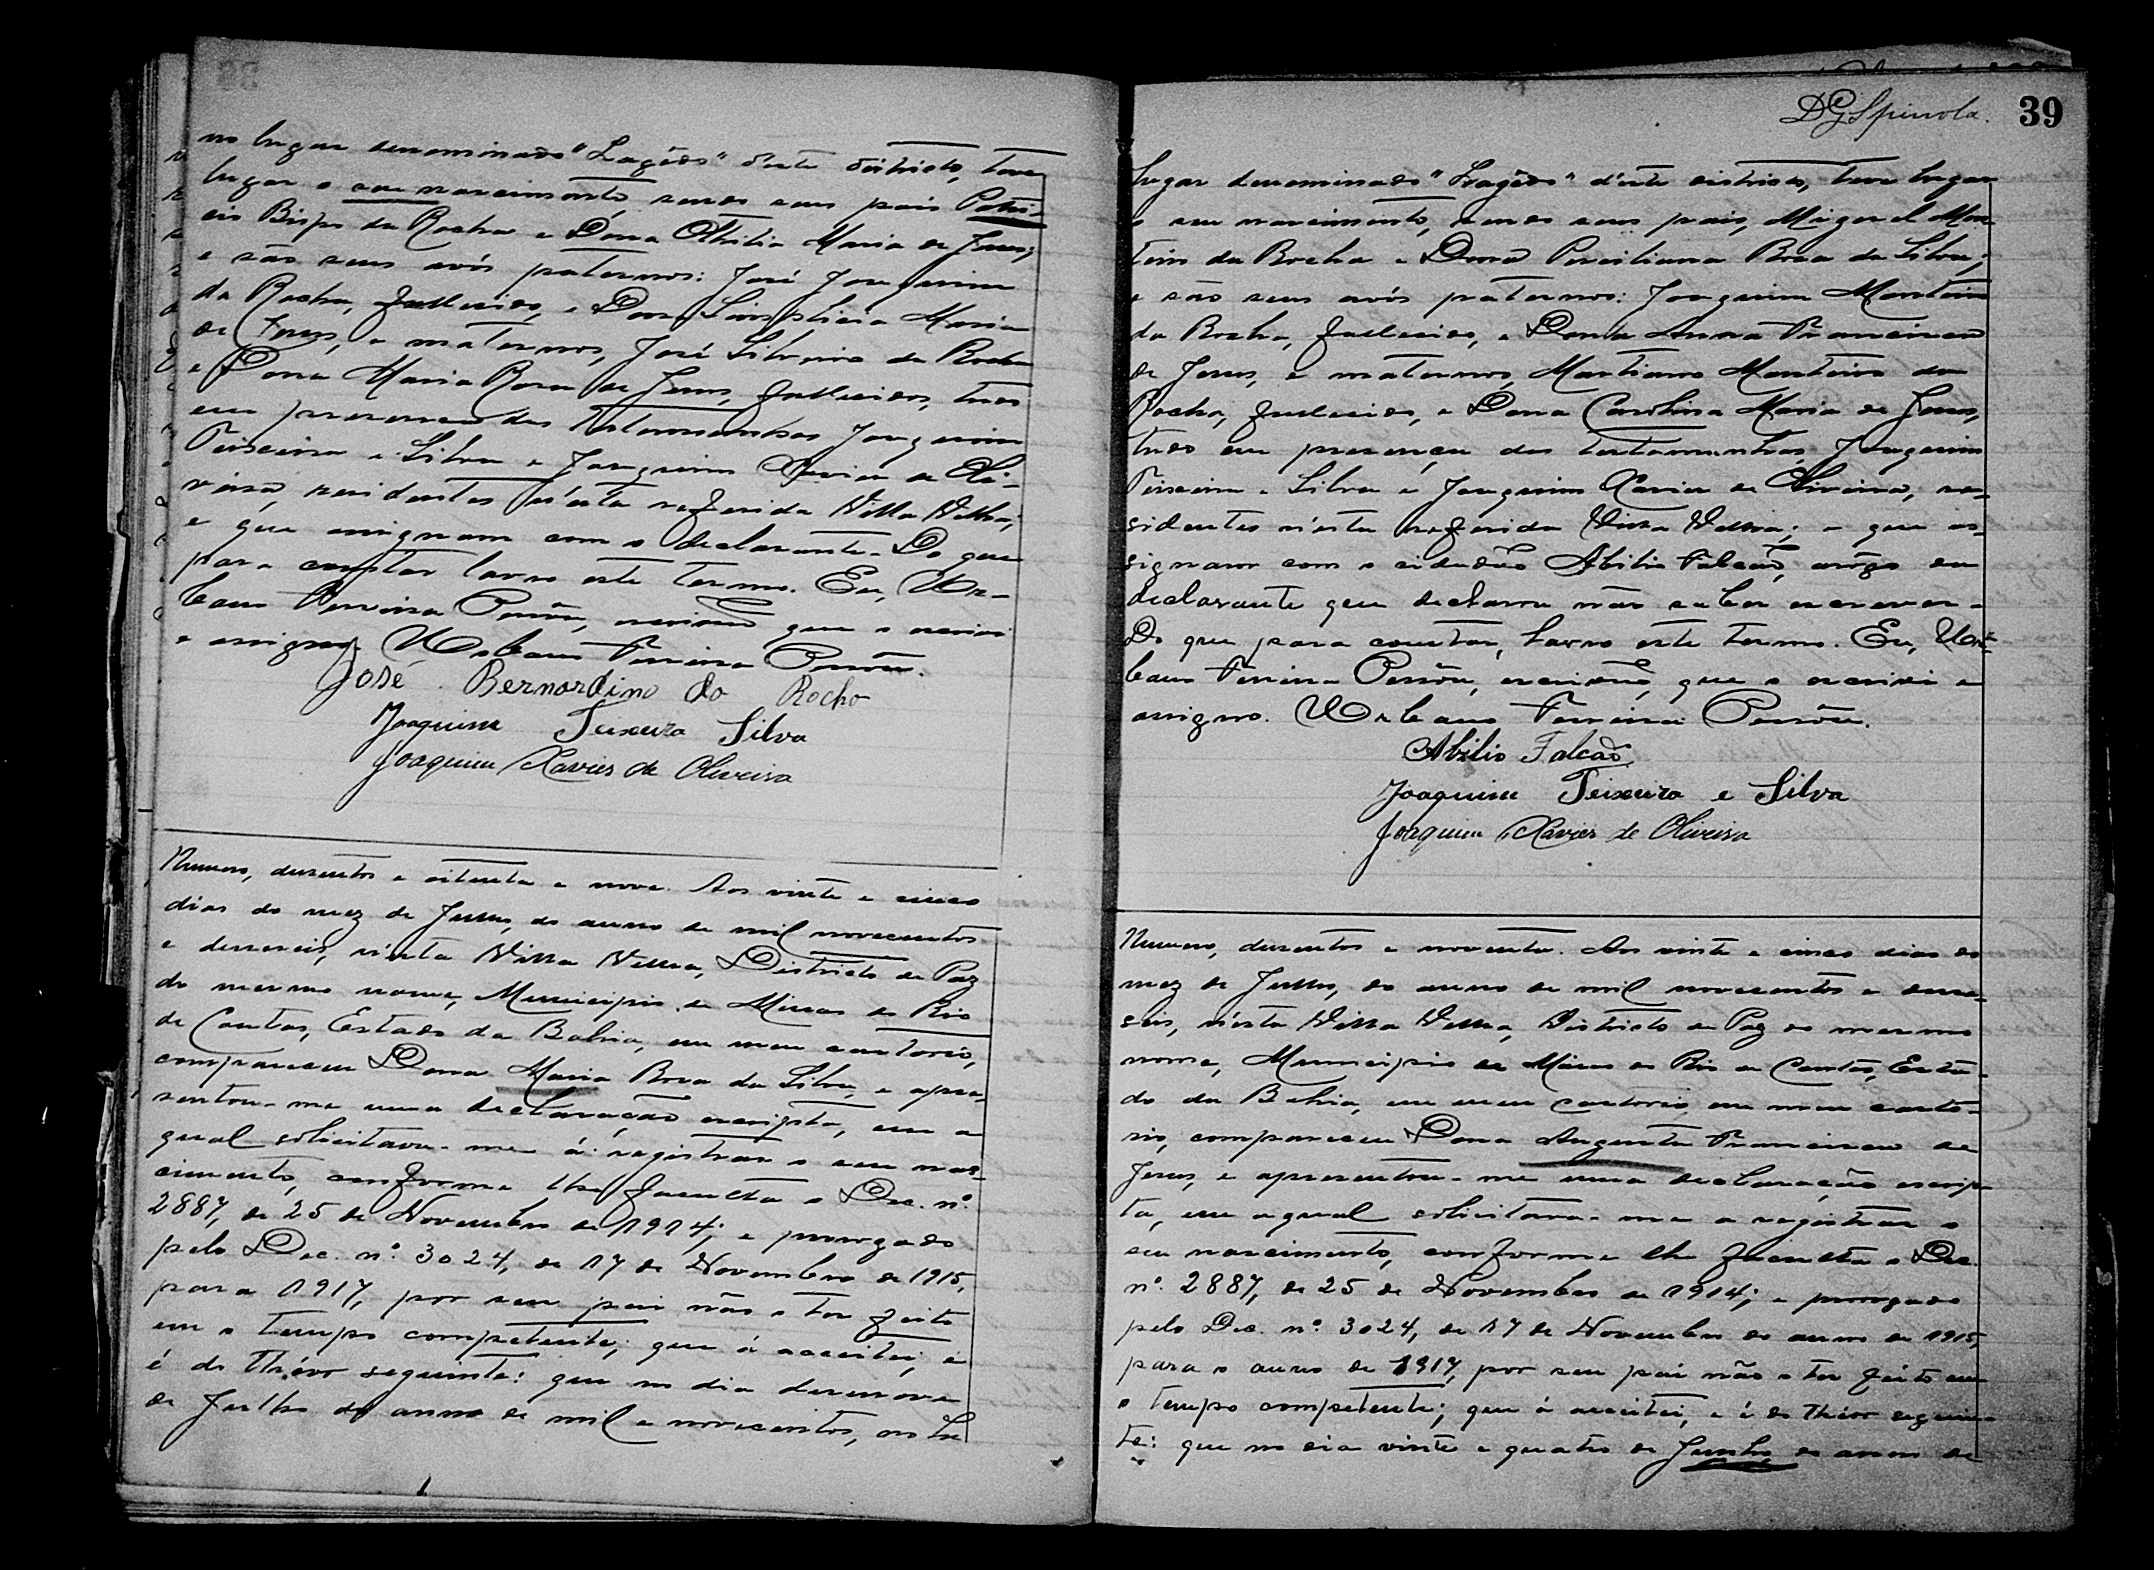 no lugar denominado "Lagêdo" d'este districto, teve
lugar o seu nascimento, sendo seus pais Patri-
cio Bispo da Rocha e Dona Othilia Maria de Jesus;
e são seus avós paternos: José Joaquim
da Rocha, fallecido, e Dona Simplicia Maria
de Jesus, e maternos, José Silverio da Rocha
e Dona Maria Rosa de Jesus, fallecidos, tudo
em presença das testemunhas Joaquim
Teixeira e Silva e Joaquim Xavier de Oli-
veira, residentes n'esta referida Villa Velha;
e que assignam com o declarante. Do que
para constar lavro este termo. Eu, Ur-
bano Ferreira, escrivão que o escrevi
e assigno. Urbano Ferreira
José Bernardino da Rocha
Joaquim Teixeira Silva
Joaquim Xavier de Oliveira
Numero, dusentos e oitenta e nove. Aos vinte e cinco
dias do mez de Julho, do anno de mil novecentos
e deseseis, n'esta Villa Velha, Districto de Paz
do mesmo nome, Municipio de Minas do Rio
de Contas, Estado da Bahia, em meu cartorio,
compareceu Dona Maria Rosa da Silva, e apre-
sentou-me uma declaração escripta, em a
qual solicitava-me á registrar o seu nas-
cimento, conforme lhe faculta o Dec. nº.
2887, de 25 de Novembro de 1914; e prorogado
pelo Dec. nº. 3024, de 17 de Novembro de 1915,
para 1917, por seu pai não o ter feito
em o tempo competente; que á acceitei, e
é do théor seguinte: que no dia desenove
de Julho do anno de mil e novecentos, no lu
DGSpinola. 39
lugar denominado "Lagêdo" d'este districto, teve lugar
o seu nascimento, sendo seus pais, Miguel Mon-
teiro da Rocha e Dona Perciliana Rosa da Silva;
e são seus avós paternos: Joaquim Monteiro
da Rocha, fallecido, e Dona Anna Francisca
de Jesus, e maternos, Martiano Monteiro da
Rocha, fallecido, e Dona Carolina Maria de Jesus,
tudo em presença das testemunhas Joaquim
Teixeira e Silva e Joaquim Xavier de Oliveira, re-
sidentes n'esta referida Villa Velha; e que as-
signam com o cidadão Abilio Falcão, arôgo da
declarante que declarou não saber escrever.
Do que para constar, lavro este termo. Eu, Ur-
bano Ferreira, escrivão, que o escrevi e
assigno. Urbano Ferreira
Abilio Falcão
Joaquim Teixeira e Silva
Joaquim Xavier de Oliveira
Numero, dusentos e noventa. Aos vinte e cinco dias do
mez de Julho, do anno de mil novecentos e dese-
seis, n'esta Villa Velha, Districto de Paz do mesmo
nome, Municipio de Minas do Rio de Contas, Esta-
do da Bahia, em meu cartorio, em meu carto-
rio, compareceu Dona Augusta Francisca de
Jesus, e apresentou-me uma declaração escrip-
ta, em a qual solicitava-me a registrar o
seu nascimento, conforme lhe faculta o Dec.
nº. 2887, de 25 de Novembro de 1914; e prorogado
pelo Dec. nº. 3024, de 17 de Novembro do anno de 1915,
para o anno de 1917, por seu pai não o ter feito em
o tempo competente; que á acceitei, e é do théor seguin-
te: que no dia vinte e quatro de Junho, do anno de